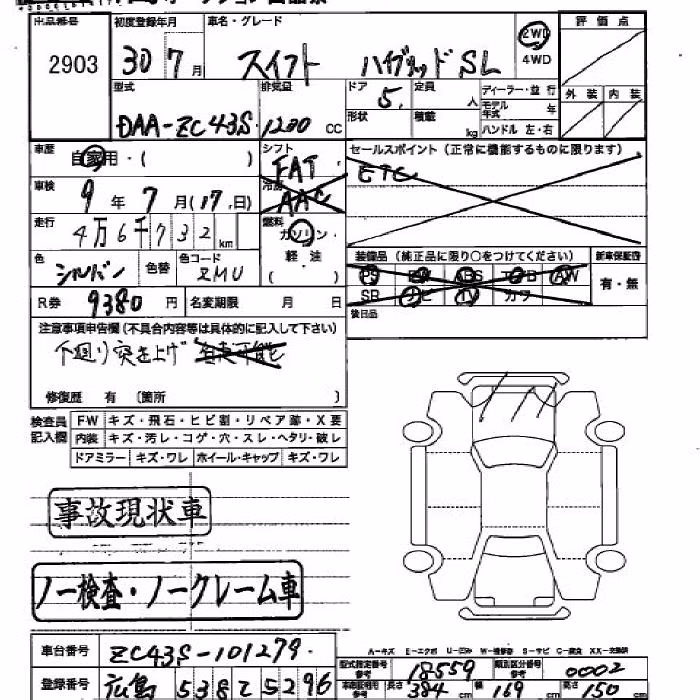 出品番号 初度登録年月 車名・グレード 2WD 評価点
2903 30年7月 スイフト ハイブリッド SL 4WD
型式 排気量 ドア 定員 ディーラー・並行 外装 内装
DAA-ZC43S 1200 cc 5 人 モデル年式 年
形状 積載 kg ハンドル 左・右
車歴 自家用・( ) シフト FAT セールスポイント (正常に機能するものに限ります)
車検 9年7月(17日) 冷房 AAC ETC
走行 4万6千732km 燃料 ガソリン・軽油 ( )
色 シルバー 色替 色コード ZMU 装備品 (純正品に限り○をつけてください) 新車保証書
R券 9380円 名変期限 月 日 PS PW ABS エアB AW 有・無
SR ナビ TV カワ
後日品
注意事項申告欄(不具合内容等は具体的に記入して下さい)
下廻り突き上げ 自走可能
修復歴 有 [箇所 ]
検査員 FW キズ・飛石・ヒビ割・リペア跡・X要
記入欄 内装 キズ・汚レ・コゲ・穴・スレ・ヘタリ・破レ
ドアミラー キズ・ワレ ホイール・キャップ キズ・ワレ
事故現状車
ノー検査・ノークレーム車
A-キズ E-エクボ U-凹み W-補修跡 S-サビ C-腐食 XX-交換済
車台番号 ZC43S-101279 型式指定番号 参考 18559 類別区分番号 参考 0002
登録番号 広島 538 そ 5296 車検証明用 参考 長さ 384 cm 幅 169 cm 高さ 150 cm